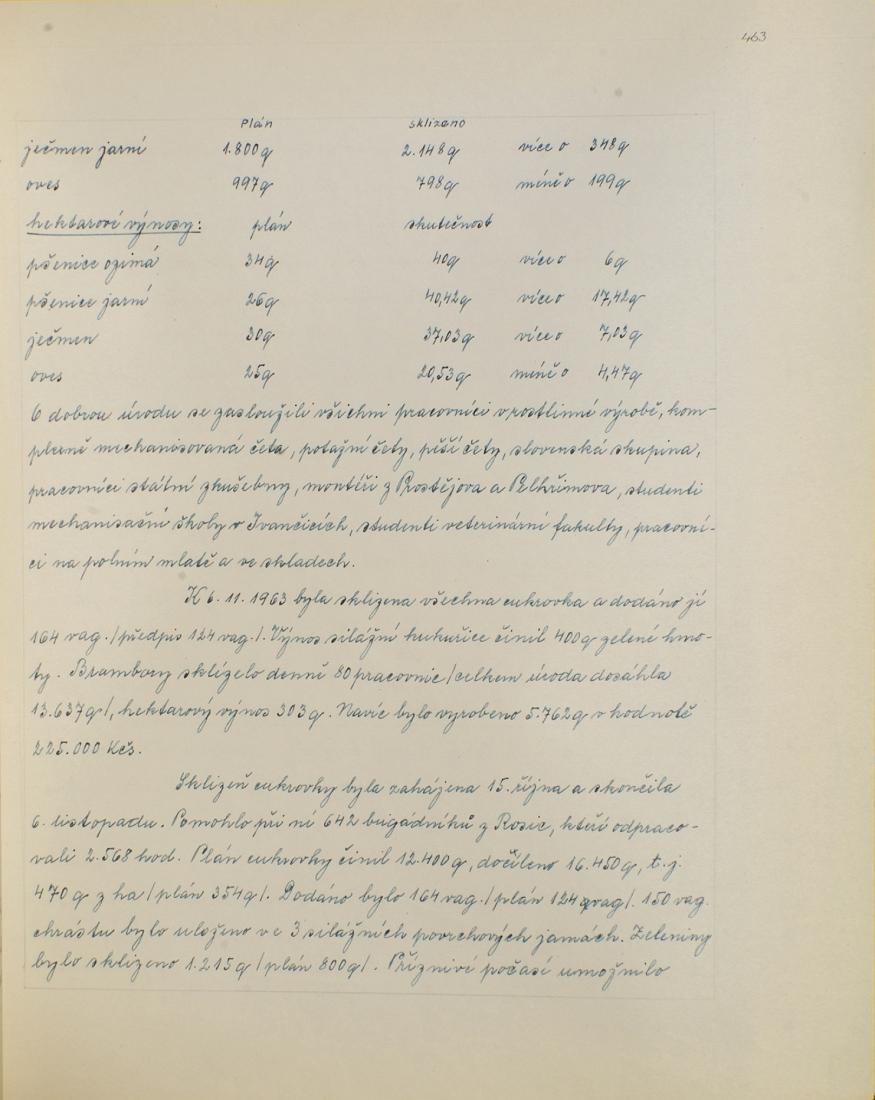 463
Plán sklizeno
ječmen jarní 1.800q 2.148q více o 348q
oves 997q 798q méně o 199q
hektarové výnosy: plán skutečnost
pšenice ozimá 34q 40q více o 6q
pšenice jarní 26q 40,42q více o 17,42q
ječmen 30q 37,03q více o 7,03q
oves 25q 20,53q méně o 4,47q
O dobrou úrodu se zasloužili všichni pracovníci v rostlinné výrobě, kom-
plexně mechanisovaná četa, potažní čety, pěší čety, slovenská skupina,
pracovníci státní zkušebny, montéři z Prostějova a Pelhřimova, studenti
mechanisační školy v Ivančicích, studenti veterinární fakulty, pracovní-
ci na polním mlatě a ve skladech.
K 6. 11. 1963 byla sklizena všechna cukrovka a dodáno jí
164 vag. /předpis 124 vag./. Výnos silážní kukuřice činil 400q zelené hmo-
ty. Brambory sklízelo denně 80 pracovnic /celkem úroda dosáhla
13.637q/, hektarový výnos 303q. Navíc bylo vyrobeno 5.762q v hodnotě
225.000 Kčs.
Sklizeň cukrovky byla zahájena 15. října a skončila
6. listopadu. Pomohlo při ní 642 brigádníků z Rosic, kteří odpraco-
vali 2.568 hod. Plán cukrovky činil 12.400q, docíleno 16.450q, t.j.
470 q z ha /plán 354q/. Dodáno bylo 164 vag. /plán 124 vag/. 150 vag.
chrástu bylo uloženo ve 3 silážních povrchových jamách. Zeleniny
bylo sklizeno 1.215q /plán 800q/. Příznivé počasí umožnilo